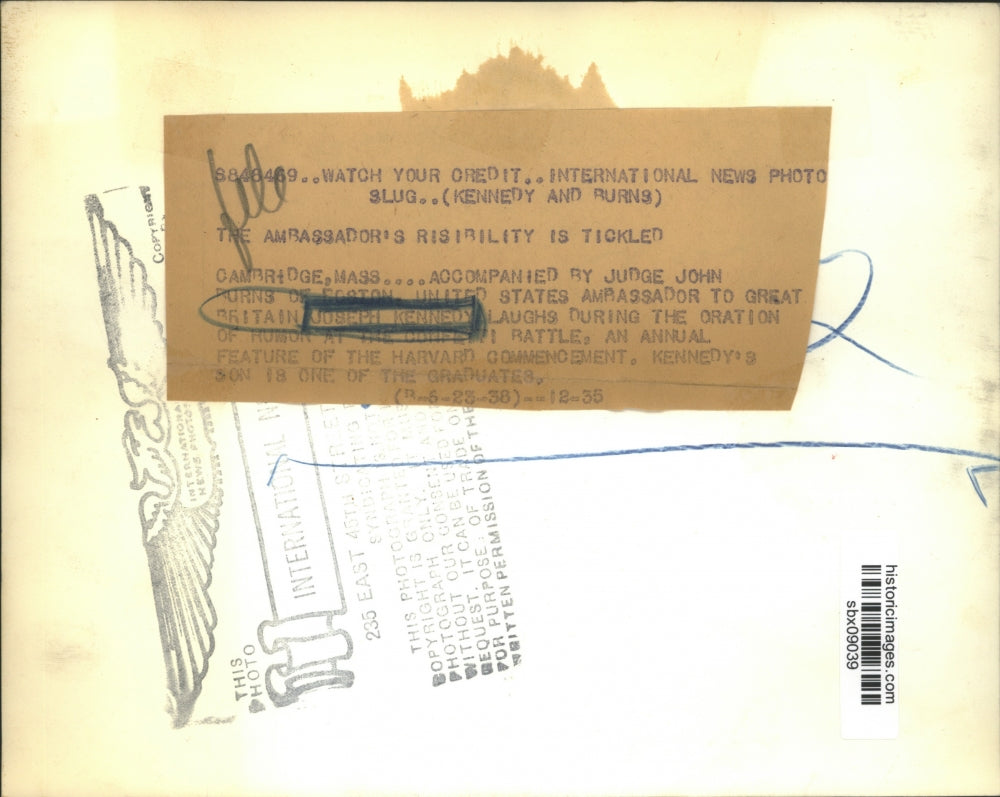 file
S848469..WATCH YOUR CREDIT..INTERNATIONAL NEWS PHOTO
SLUG..(KENNEDY AND BURNS)
THE AMBASSADOR'S RISIBILITY IS TICKLED
CAMBRIDGE,MASS....ACCOMPANIED BY JUDGE JOHN
BURNS OF BOSTON, UNITED STATES AMBASSADOR TO GREAT
BRITAIN JOSEPH KENNEDY LAUGHS DURING THE ORATION
OF HUMOR AT THE CONFETTI BATTLE, AN ANNUAL
FEATURE OF THE HARVARD COMMENCEMENT. KENNEDY'S
SON IS ONE OF THE GRADUATES.
(B-6-23-38)--12-35
COPYRIGHT
INTERNATIONAL
NEWS PHOTOS
THIS
PHOTO
INTERNATIONAL N
235 EAST 45TH STREET
SYNDICATING
THIS PHOTOGRAPH
COPYRIGHT IS GRANTED
PHOTOGRAPH ONLY.
WITHOUT OUR CONSENT
REQUEST. IT CAN BE USED FOR
FOR PURPOSE OF TRADE OR
WRITTEN PERMISSION OF THE
historicimages.com
sbx09039